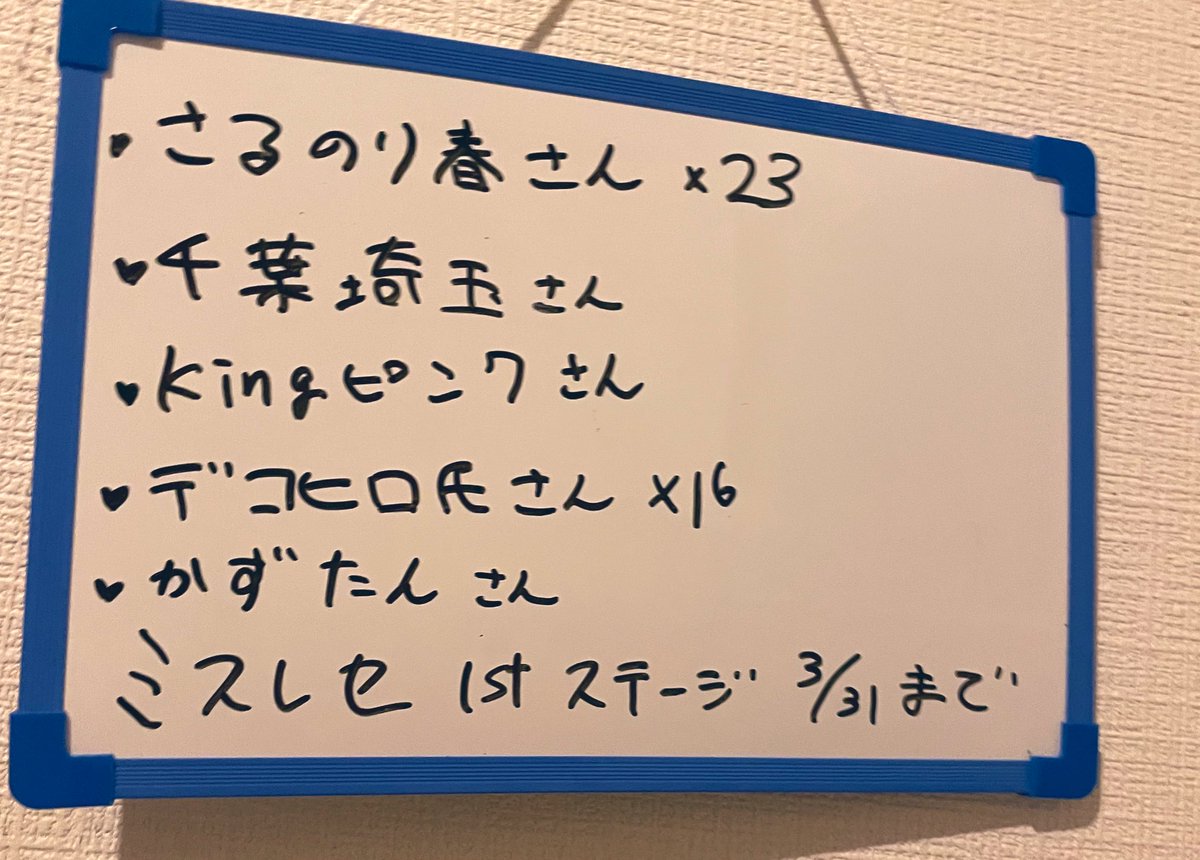 ・さるのり春さん ×23
♥千葉埼玉さん
♥Kingピンクさん
♥デコヒロ氏さん ×16
♥かずたんさん
ミスレセ 1st ステージ 3/31まで